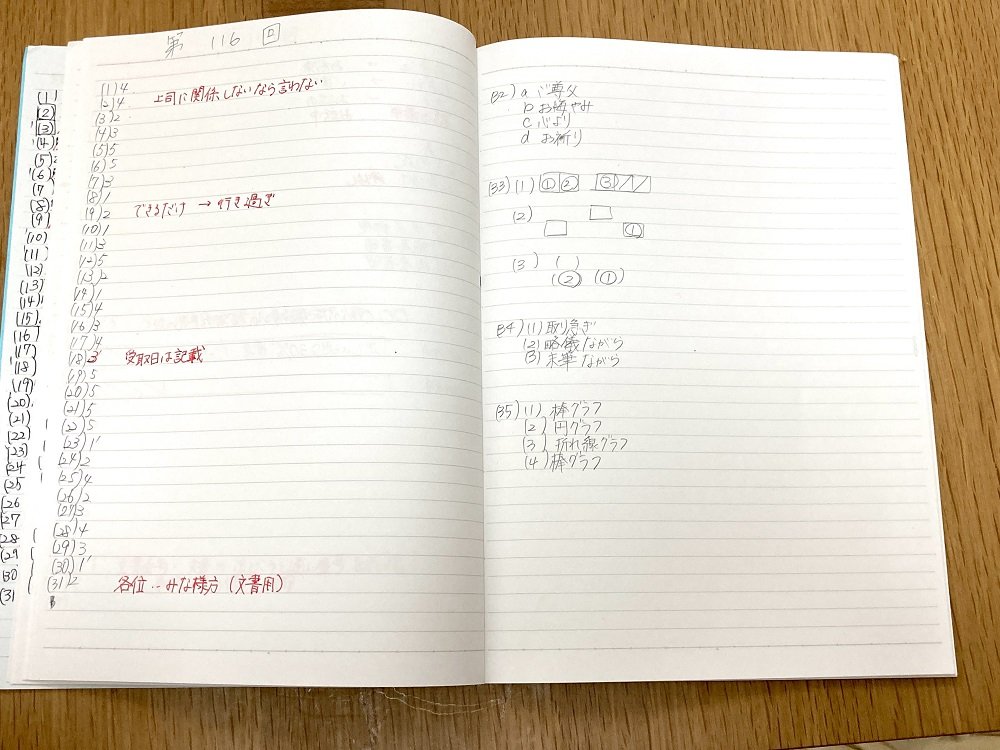 第 116 回
(1) 4
(2) 4 上司に関係しないなら言わない
(3) 2
(4) 3
(5) 5
(6) 5
(7) 3
(8) 1
(9) 2 できるだけ → 行き過ぎ
(10) 1
(11) 3
(12) 5
(13) 2
(14) 1
(15) 4
(16) 3
(17) 4
(18) 3 受取日は記載
(19) 5
(20) 5
(21) 5
(22) 5
(23) 1
(24) 2
(25) 4
(26) 2
(27) 3
(28) 4
(29) 3
(30) 1
(31) 2 各位‥みな様方(文書用)
(1)
(2)
(3)
(4)
(5)
(6)
(7
(8)
(9)
(10)
(11
(12)
(13)
(14)
(15)
(16
(17
(18
(19
(20)
(21)
(22
(23)
(24
(25
(26
(27
(28
(29
(30
(31
32) a ご尊父
b お悔やみ
c 心より
d お祈り
(33) (1) ① ② ③ / /
(2)
①
(3) ( )
(②) (①)
34) (1) 取り急ぎ
(2) 略儀ながら
(3) 末筆ながら
(35) (1) 棒グラフ
(2) 円グラフ
(3) 折れ線グラフ
(4) 棒グラフ